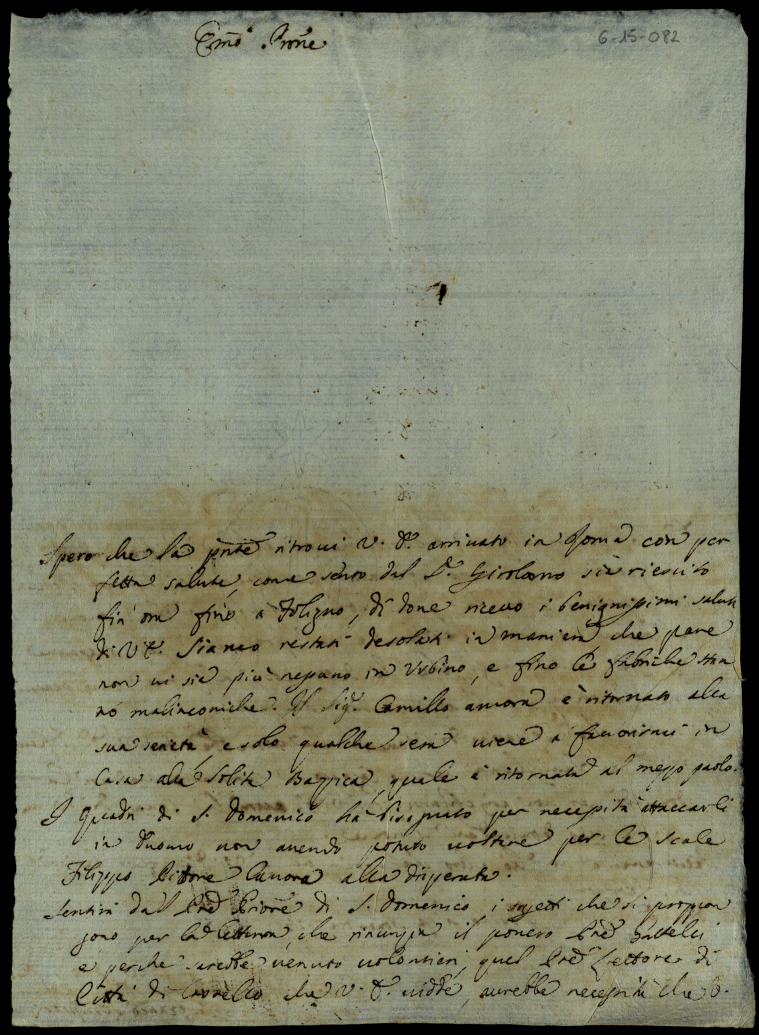 Em̃o Prõne
6-15-082
Spero che la pñte ritrovi V. E. arrivato in Roma con per
fetta salute, come sento dal Sr. Girolamo sia riescito
fin' ora fino a Foligno, di dove ricevo i benignissimi saluti
di V. E. Siamo restati desolati in maniera che pare
non vi sia più nessuno in Urbino, e fino le fabriche stan
no malinconiche. Il Sigr. Camillo ancora è ritornato alla
sua serietà e solo qualche sera viene a favorirmi in
Casa alla solita Bazzica, quale è ritornata al mezzo paolo.
I quadri di S. Domenico ha bisognato per necessità attaccarli
in Duomo non avendo potuto voltare per le scale
Filippo Pittore lavora alla disperata.
Sentirà dal Pre Priore di S. Domenico i sogetti che si propon
gono per la Lettura, che rinunzia il povero Pre
e perche sarebbe venuto volontieri, quel Pre Lettore di
Città di Castello che V. E. vidde, averebbe necessità che V.